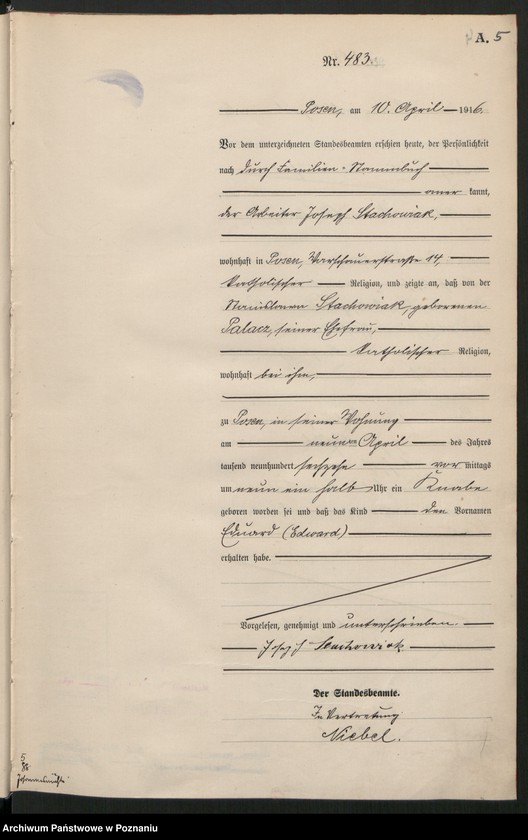 A. 5
Nr. 483
Posen, am 10. April 1916.
Vor dem unterzeichneten Standesbeamten erschien heute, der Persönlichkeit
nach durch Familien-Stammbuch
aner kannt,
der Arbeiter Joseph Stachowiak,
wohnhaft in Posen, Warschauerstraße 14,
katholischer Religion, und zeigte an, daß von der
Stanislawa Stachowiak, geborenen
Palacz, seiner Ehefrau,
katholischer Religion,
wohnhaft bei ihm,
zu Posen, in seiner Wohnung
am neunten April des Jahres
tausend neunhundert sechzehn vor mittags
um neun ein halb Uhr ein Knabe
geboren worden sei und daß das Kind den Vornamen
Eduard (Edward)
erhalten habe.
Vorgelesen, genehmigt und unterschrieben
Josef Stachowiak
Der Standesbeamte.
In Vertretung
Niebel.
5
Archiwum Państwowe w Poznaniu